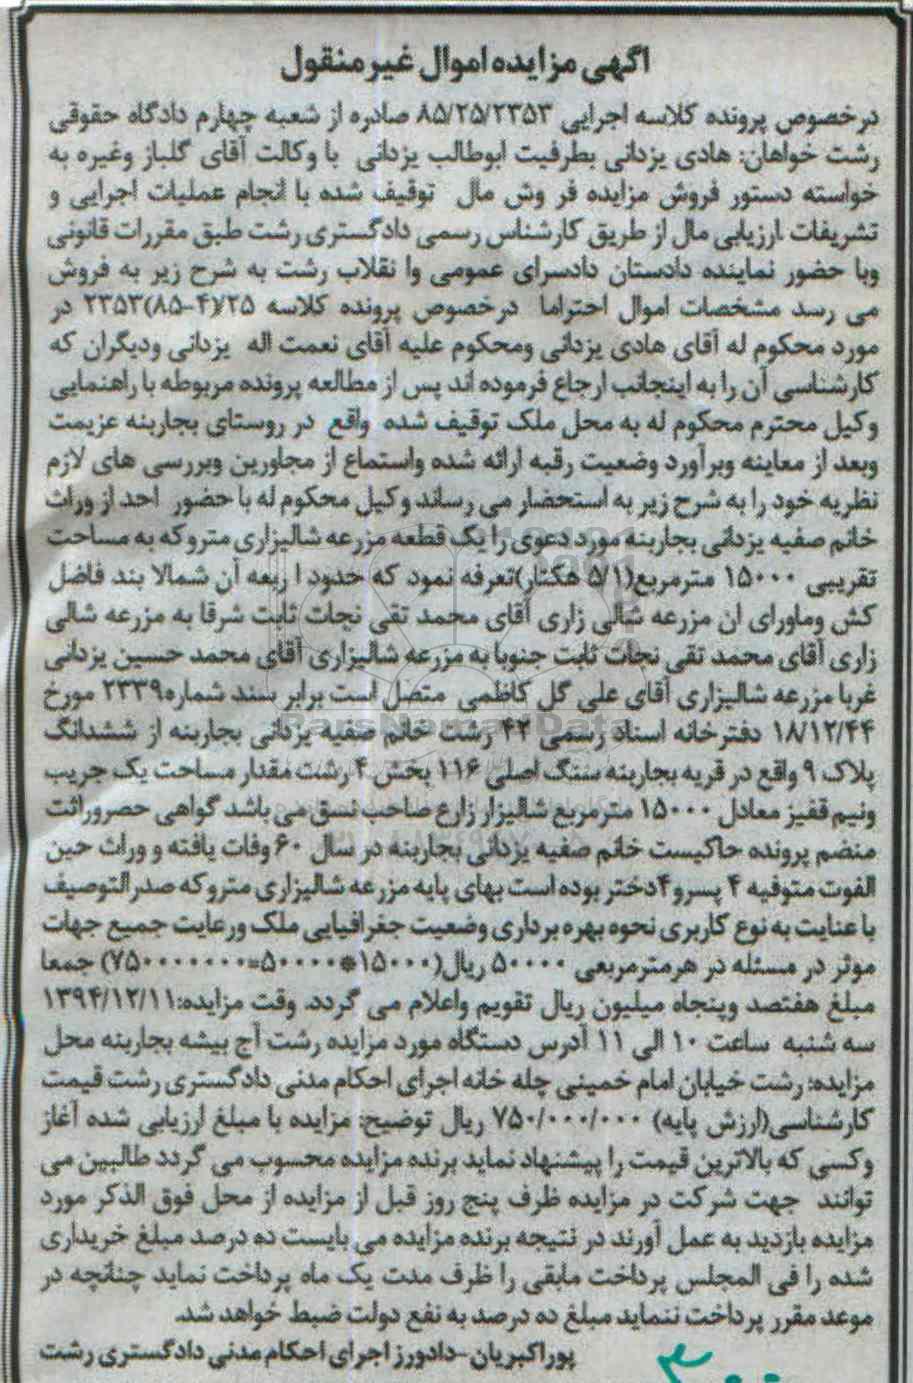 آگهی مزایده اموال غیر منقول
درخصوص پرونده کلاسه اجرایی ۸۵/۲۵/۲۳۵۳ صادره از شعبه چهارم دادگاه حقوقی
رشت خواهان: هادی یزدانی بطرفیت ابوطالب یزدانی با وکالت آقای گلباز وغیره به
خواسته دستور فروش مزایده فر وش مال توقیف شده با انجام عملیات اجرایی و
تشریفات .ارزیابی مال از طریق کارشناس رسمی دادگستری رشت طبق مقررات قانونی
وبا حضور نماینده دادستان دادسرای عمومی وا نقلاب رشت به شرح زیر به فروش
می رسد مشخصات اموال احتراما درخصوص پرونده کلاسه ۲۵/(۴-۸۵)۲۳۵۳ در
مورد محکوم له آقای هادی یزدانی ومحکوم علیه آقای نعمت اله یزدانی ودیگران که
کارشناسی آن را به اینجانب ارجاع فرموده اند پس از مطالعه پرونده مربوطه با راهنمایی
وکیل محترم محکوم له به محل ملک توقیف شده واقع در روستای بجاربنه عزیمت
وبعد از معاینه وبرآورد وضعیت رقبه ارائه شده واستماع از مجاورین وبررسی های لازم
نظریه خود را به شرح زیر به استحضار می رساند وکیل محکوم له با حضور احد از وراث
خانم صفیه یزدانی بجاربنه مورد دعوی را یک قطعه مزرعه شالیزاری متروکه به مساحت
تقریبی ۱۵۰۰۰ مترمربع(۵/۱ هکتار)تعرفه نمود که حدود ا ربعه آن شمالا بند فاضل
کش وماورای ان مزرعه شالی زاری آقای محمد تقی نجات ثابت شرقا به مزرعه شالی
زاری آقای محمد تقی نجات ثابت جنوبا به مزرعه شالیزاری آقای محمد حسین یزدانی
غربا مزرعه شالیزاری آقای علی گل کاظمی متصل است برابر سند شماره۲۳۳۹ مورخ
۱۸/۱۲/۴۴ دفترخانه اسناد رسمی ۴۲ رشت خانم صفیه یزدانی بجاربنه از ششدانگ
پلاک ۹ واقع در قریه بجاربنه سنگ اصلی ۱۱۶ بخش ۴ رشت مقدار مساحت یک جریب
ونیم قفیز معادل ۱۵۰۰۰ مترمربع شالیزار زارع صاحب نسق می باشد گواهی حصروراثت
منضم پرونده حاکیست خانم صفیه یزدانی بجاربنه در سال ۶۰ وفات یافته و وراث حین
الفوت متوفیه ۴ پسرو۴دختر بوده است بهای پایه مزرعه شالیزاری متروکه صدرالتوصیف
با عنایت به نوع کاربری نحوه بهره برداری وضعیت جغرافیایی ملک ورعایت جمیع جهات
موثر در مسئله در هرمترمربعی ۵۰۰۰۰ ریال(۱۵۰۰۰*۵۰۰۰۰=۷۵۰۰۰۰۰۰۰) جمعا
مبلغ هفتصد وپنجاه میلیون ریال تقویم واعلام می گردد. وقت مزایده:۱۳۹۴/۱۲/۱۱
سه شنبه ساعت ۱۰ الی ۱۱ آدرس دستگاه مورد مزایده رشت آج بیشه بجاربنه محل
مزایده: رشت خیابان امام خمینی چله خانه اجرای احکام مدنی دادگستری رشت قیمت
کارشناسی(ارزش پایه) ۷۵۰/۰۰۰/۰۰۰ ریال توضیح: مزایده با مبلغ ارزیابی شده آغاز
وکسی که بالاترین قیمت را پیشنهاد نماید برنده مزایده محسوب می گردد طالبین می
توانند جهت شرکت در مزایده ظرف پنج روز قبل از مزایده از محل فوق الذکر مورد
مزایده بازدید به عمل آورند در نتیجه برنده مزایده می بایست ده درصد مبلغ خریداری
شده را فی المجلس پرداخت مابقی را ظرف مدت یک ماه پرداخت نماید چنانچه در
موعد مقرر پرداخت ننماید مبلغ ده درصد به نفع دولت ضبط خواهد شد.
پوراکبریان-دادورز اجرای احکام مدنی دادگستری رشت
ParsNamadData